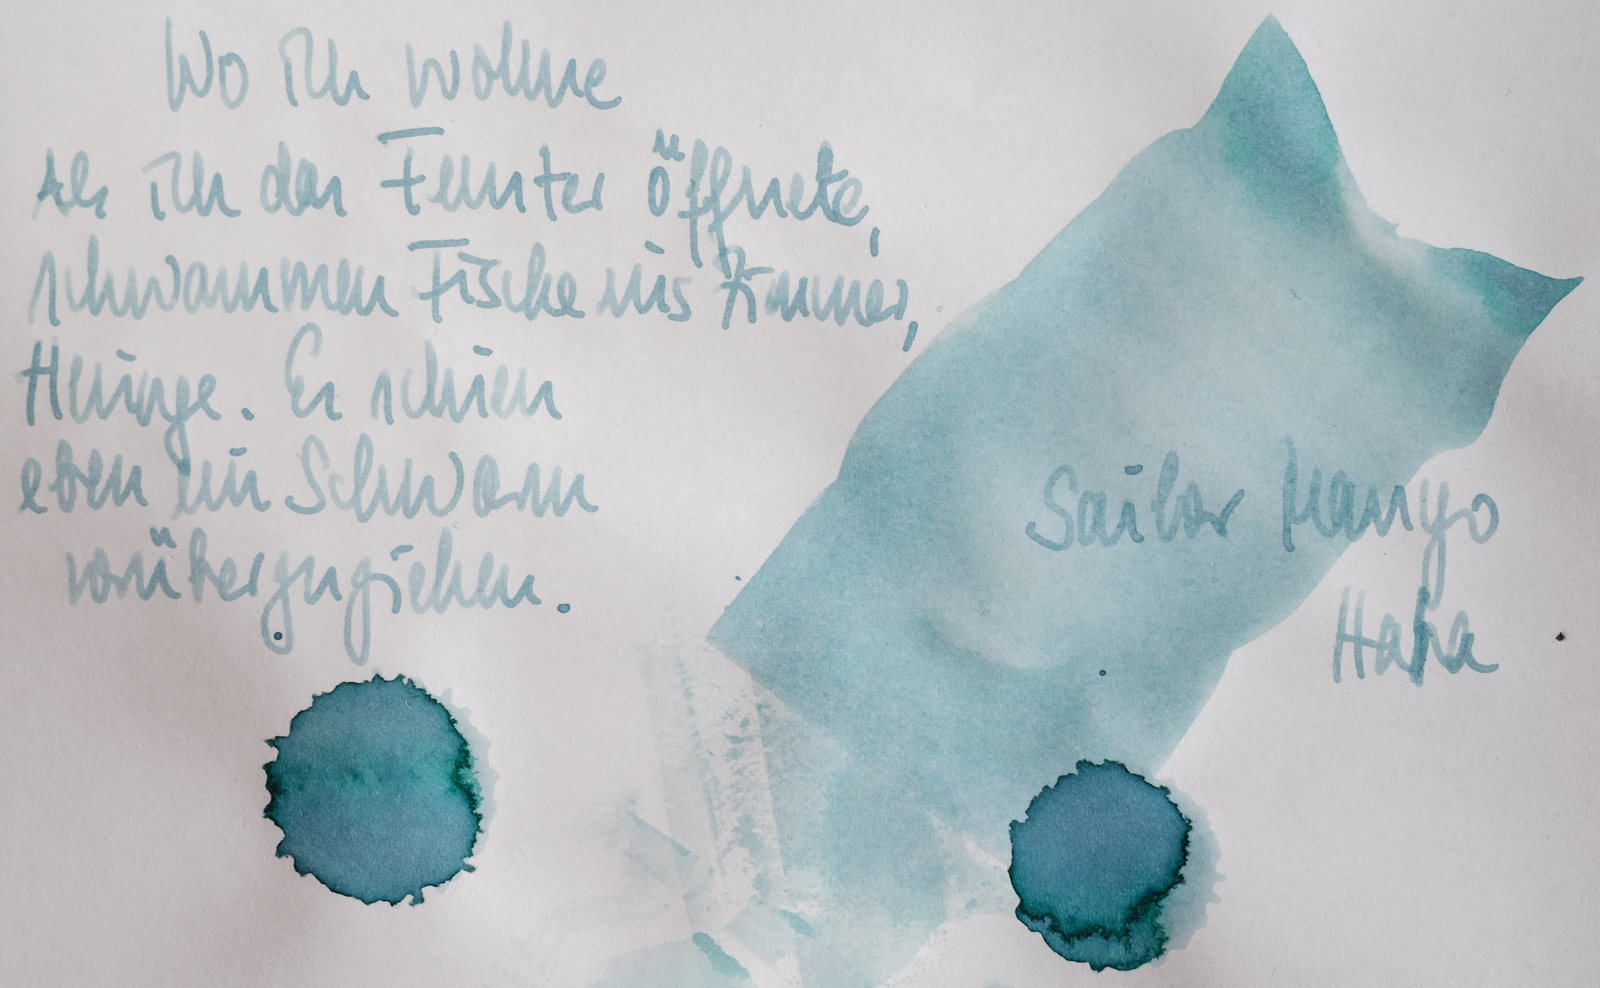 Wo ich wohne
Als ich das Fenster öffnete,
schwammen Fische ins Zimmer,
Heringe. Es schien
eben ein Schwarm
vorüberzuziehen.
Sailor Manyo
Haha